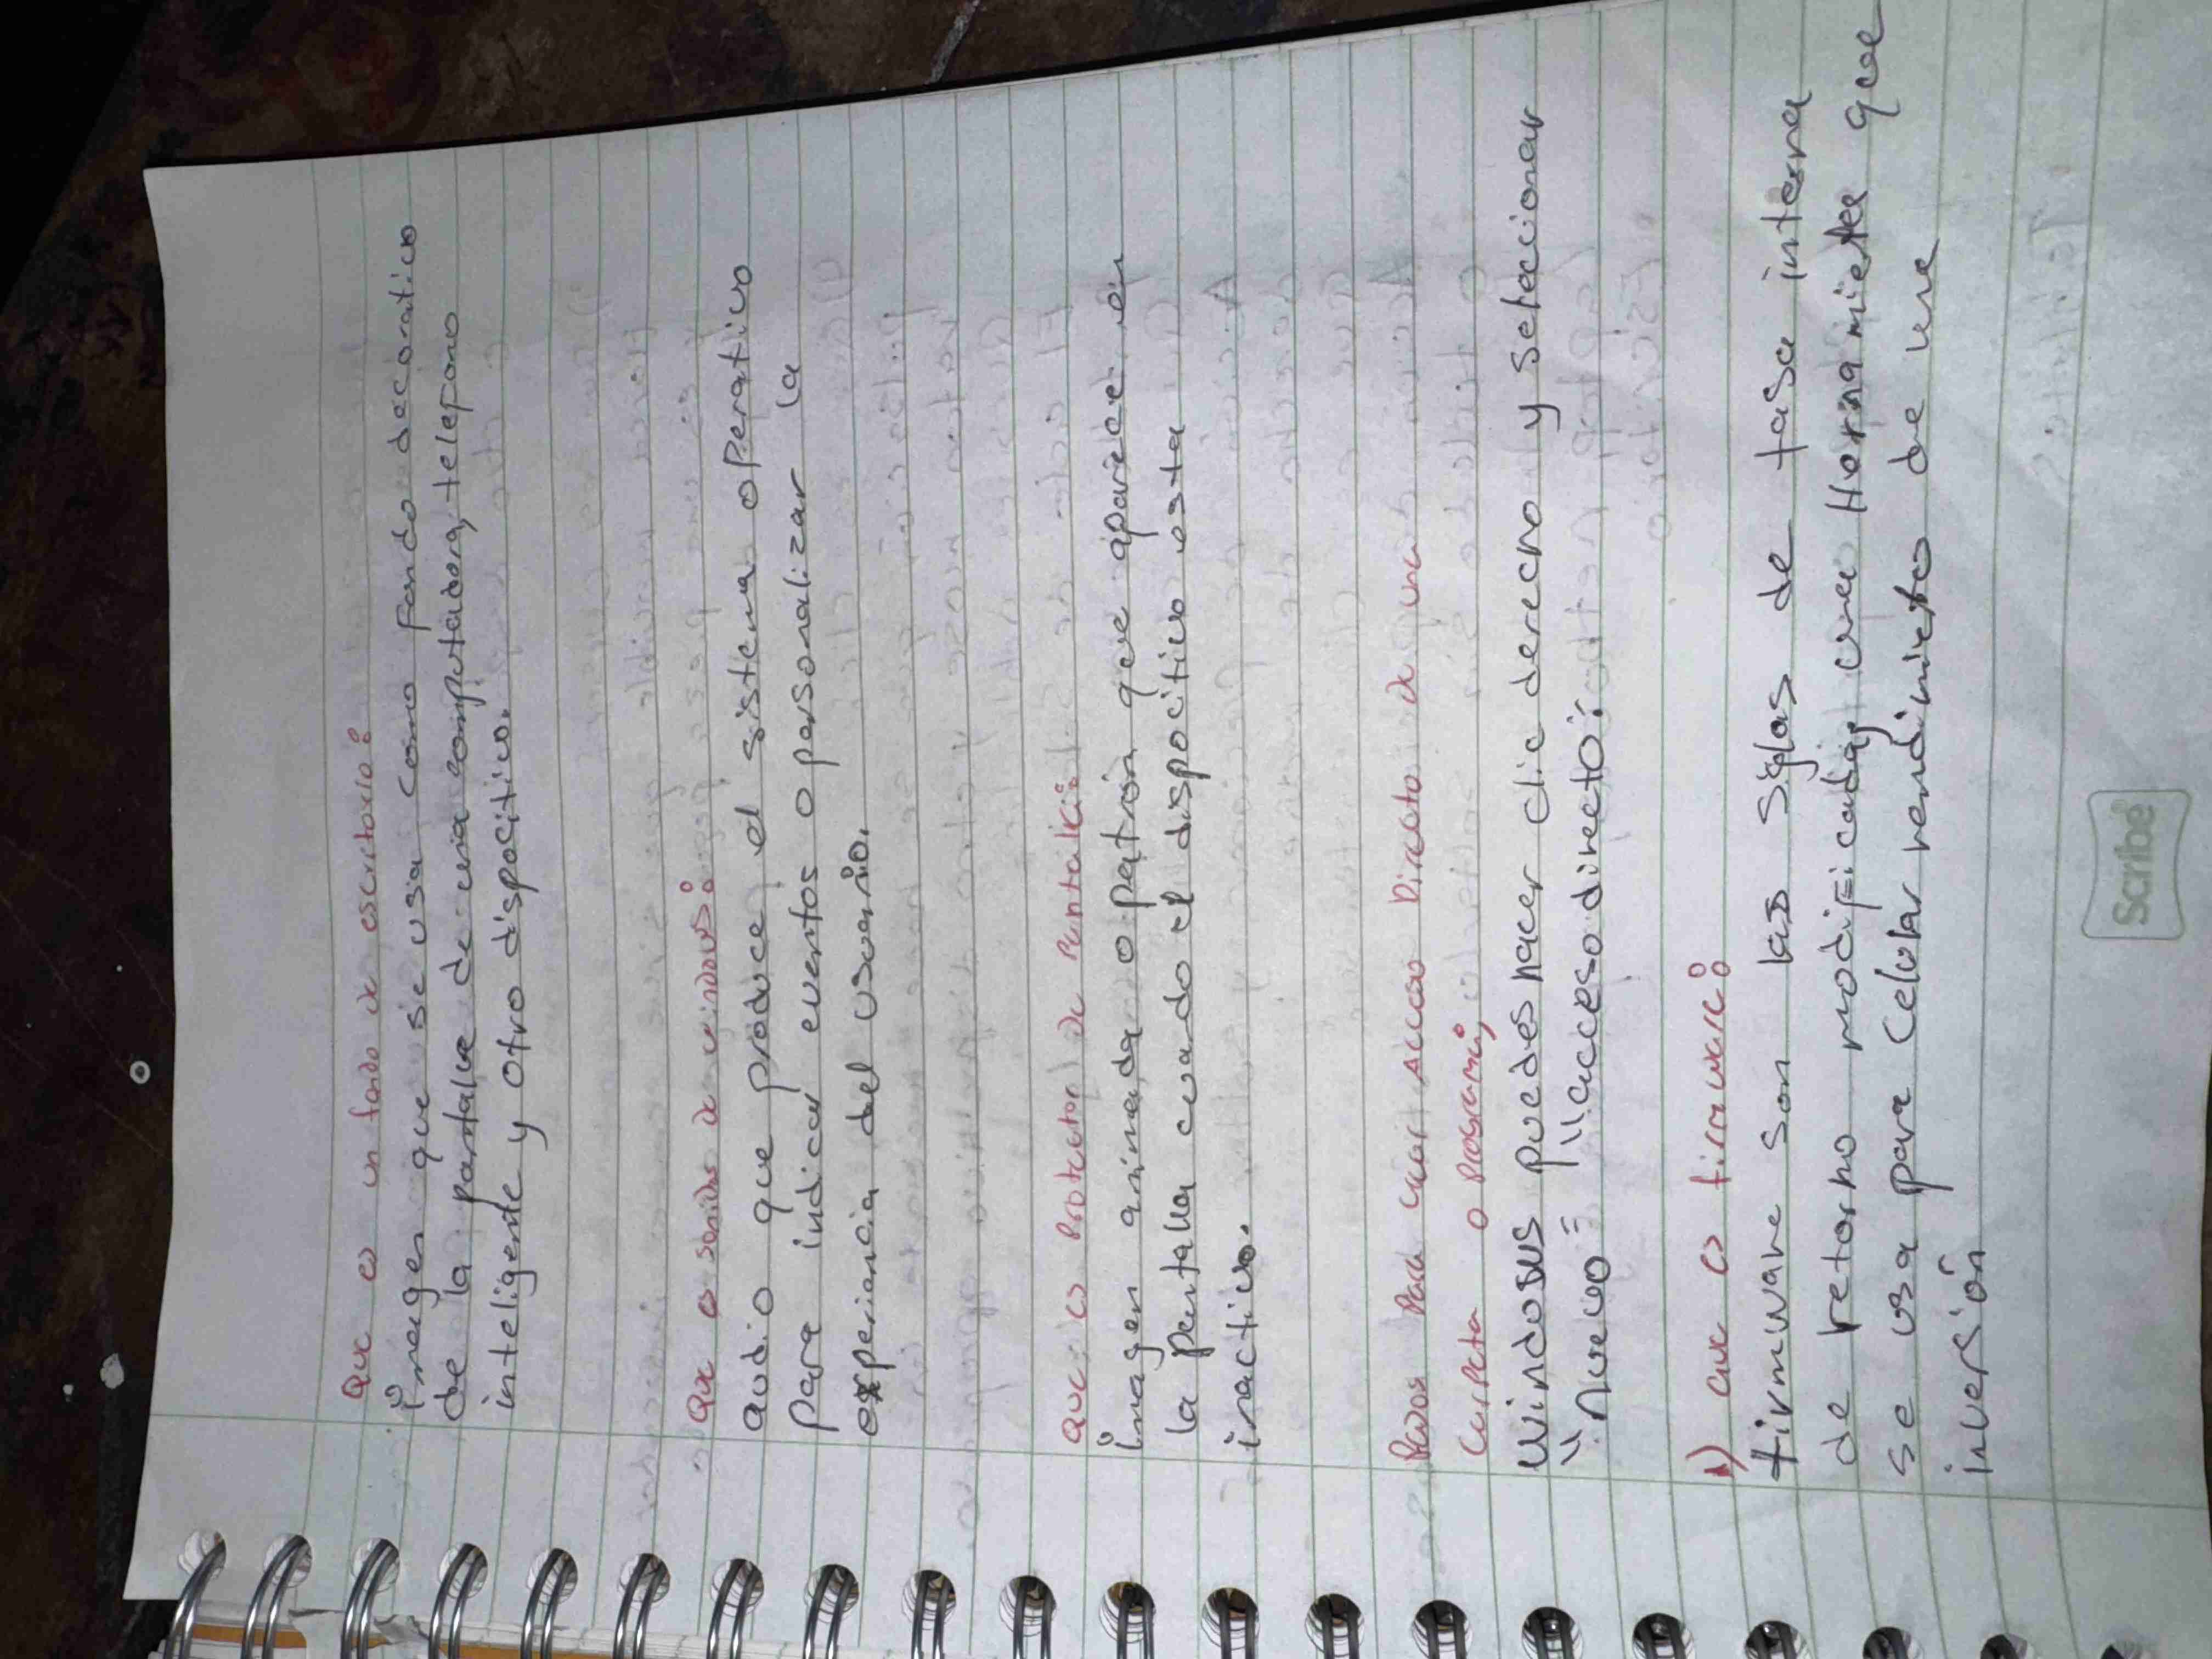 Que es un fondo de escritorio?
imagen que se usa como fondo decoratico
de la pantalla de una computadora, telepono
inteligente y otro dispocitico.
Que es sonidos de windows?
audio que produce el sistema operatico
para indicar eventos o personalizar la
experiencia del usuario.
Que es protector de Pantalla?
imagen animada o patrón que aparece en
la pantalla cuando el dispocitivo esta
inactivo.
Pasos Para crear Acceso Directo de una
carpeta o programa,
windosws puedes hacer clic derecho y seleccionar
"nuevo = "acceso directo".
1) que es firmware?
firmuware son las siglas de tasa interna
de retorno modificada, una Herramieta que
se usa para Celular rendimieto de una
inversión
Scribe